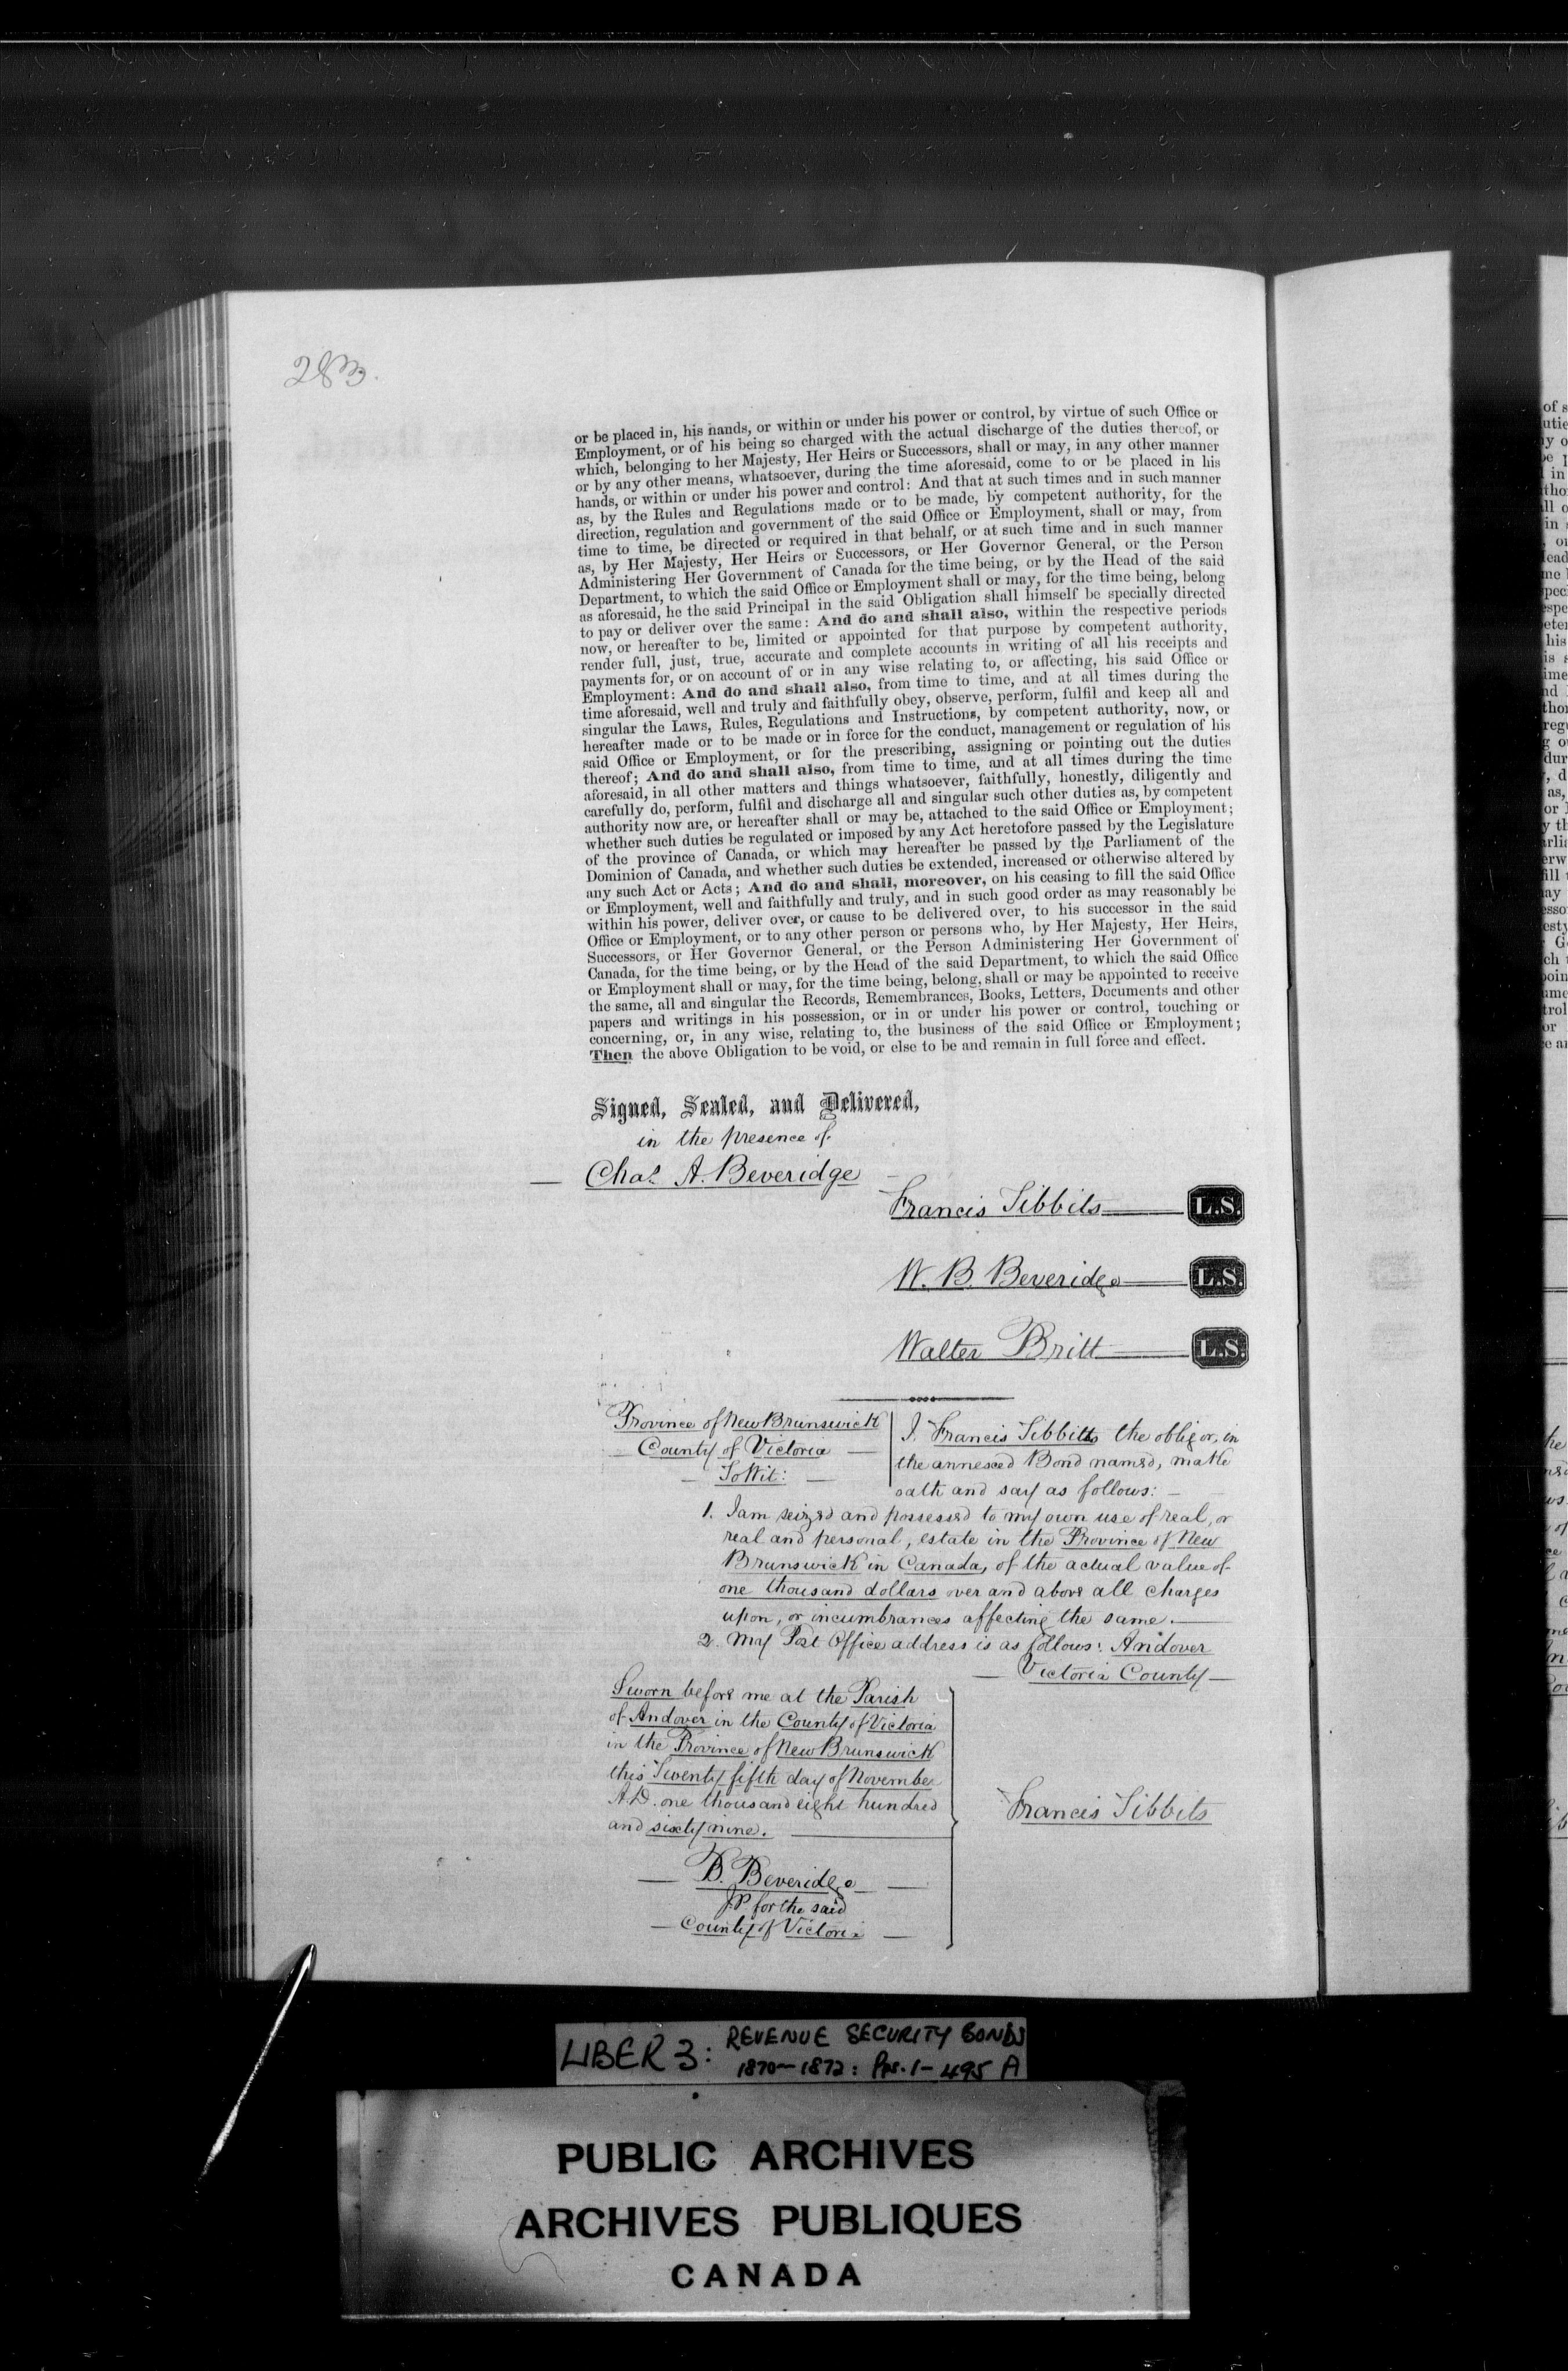 283.
or be placed in, his hands, or within or under his power or control, by virtue of such Office or
Employment, or of his being so charged with the actual discharge of the duties thereof, or
which, belonging to her Majesty, Her Heirs or Successors, shall or may, in any other manner
or by any other means, whatsoever, during the time aforesaid, come to or be placed in his
hands, or within or under his power and control: And that at such times and in such manner
as, by the Rules and Regulations made or to be made, by competent authority, for the
direction, regulation and government of the said Office or Employment, shall or may, from
time to time, be directed or required in that behalf, or at such time and in such manner
as, by Her Majesty, Her Heirs or Successors, or Her Governor General, or the Person
Administering Her Government of Canada for the time being, or by the Head of the said
Department, to which the said Office or Employment shall or may, for the time being, belong
as aforesaid, he the said Principal in the said Obligation shall himself be specially directed
to pay or deliver over the same: And do and shall also, within the respective periods
now, or hereafter to be, limited or appointed for that purpose by competent authority,
render full, just, true, accurate and complete accounts in writing of all his receipts and
payments for, or on account of or in any wise relating to, or affecting, his said Office or
Employment: And do and shall also, from time to time, and at all times during the
time aforesaid, well and truly and faithfully obey, observe, perform, fulfil and keep all and
singular the Laws, Rules, Regulations and Instructions, by competent authority, now, or
hereafter made or to be made or in force for the conduct, management or regulation of his
said Office or Employment, or for the prescribing, assigning or pointing out the duties
thereof; And do and shall also, from time to time, and at all times during the time
aforesaid, in all other matters and things whatsoever, faithfully, honestly, diligently and
carefully do, perform, fulfil and discharge all and singular such other duties as, by competent
authority now are, or hereafter shall or may be, attached to the said Office or Employment;
whether such duties be regulated or imposed by any Act heretofore passed by the Legislature
of the province of Canada, or which may hereafter be passed by the Parliament of the
Dominion of Canada, and whether such duties be extended, increased or otherwise altered by
any such Act or Acts; And do and shall, moreover, on his ceasing to fill the said Office
or Employment, well and faithfully and truly, and in such good order as may reasonably be
within his power, deliver over, or cause to be delivered over, to his successor in the said
Office or Employment, or to any other person or persons who, by Her Majesty, Her Heirs,
Successors, or Her Governor General, or the Person Administering Her Government of
Canada, for the time being, or by the Head of the said Department, to which the said Office
or Employment shall or may, for the time being, belong, shall or may be appointed to receive
the same, all and singular the Records, Remembrances, Books, Letters, Documents and other
papers and writings in his possession, or in or under his power or control, touching or
concerning, or, in any wise, relating to, the business of the said Office or Employment;
Then the above Obligation to be void, or else to be and remain in full force and effect.
Signed, Sealed, and Delivered,
in the presence of
Chas. A. Beveridge
Francis Tibbits L.S.
W. B. Beveridge L.S.
Walter Britt L.S.
Province of New Brunswick
County of Victoria
To Wit:
I, Francis Tibbitts the obligor, in
the annexed Bond named, make
oath and say as follows:
1. I am seized and possessed to my own use of real, or
real and personal, estate in the Province of New
Brunswick in Canada, of the actual value of
one thousand dollars over and above all charges
upon, or incumbrances affecting the same.
2. My Post Office address is as follows: Andover
Victoria County
Sworn before me at the Parish
of Andover in the County of Victoria
in the Province of New Brunswick
this Twenty fifth day of November
A.D. one thousand eight hundred
and sixty nine.
Francis Tibbits
B. Beveridge
J.P for the said
County of Victoria
LIBER 3: REVENUE SECURITY BONDS
1870-1872: Pps. 1-495 A
PUBLIC ARCHIVES
ARCHIVES PUBLIQUES
CANADA